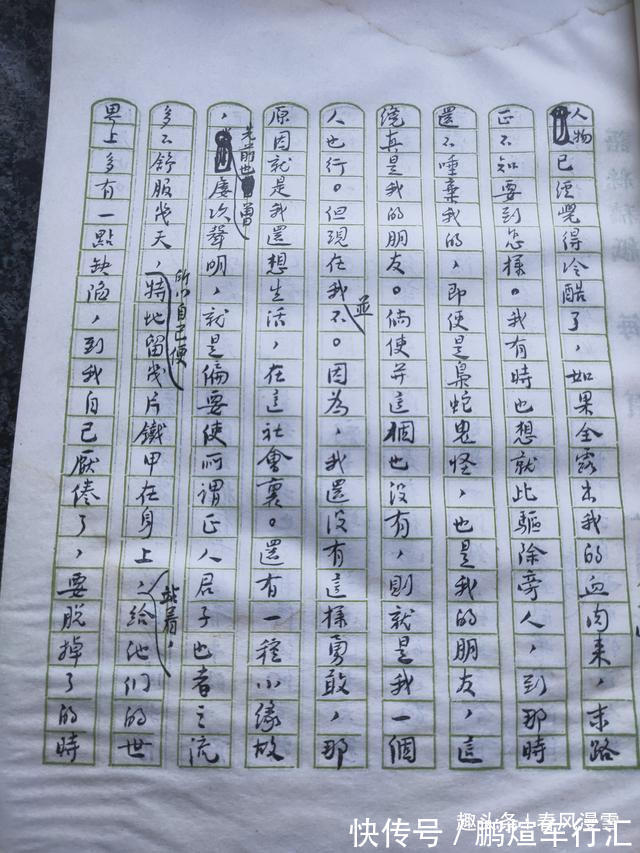 人物已經覺得冷酷了，如果全露出我的血肉來，末路
正不知要到怎樣。我有時也想就此驅除旁人，到那時
還不唾棄我的，即便是梟蛇鬼怪，也是我的朋友，這
纔真是我的朋友。倘使并這個也沒有，則就是我一個
人也行。但現在我並不。因為，我還沒有這樣勇敢，那
原因就是我還想生活，在這社會裏。還有一種小緣故
，先前也曾屢次聲明，就是偏要使所謂正人君子也者之流
多不舒服幾天，所以自己便特地留幾片鐵甲在身上，站着，給他們的世
界上多有一點缺陷，到我自己厭倦了，要脫掉了的時
趣头条 / 春风漫雪
快传号／鹏煊车行汇